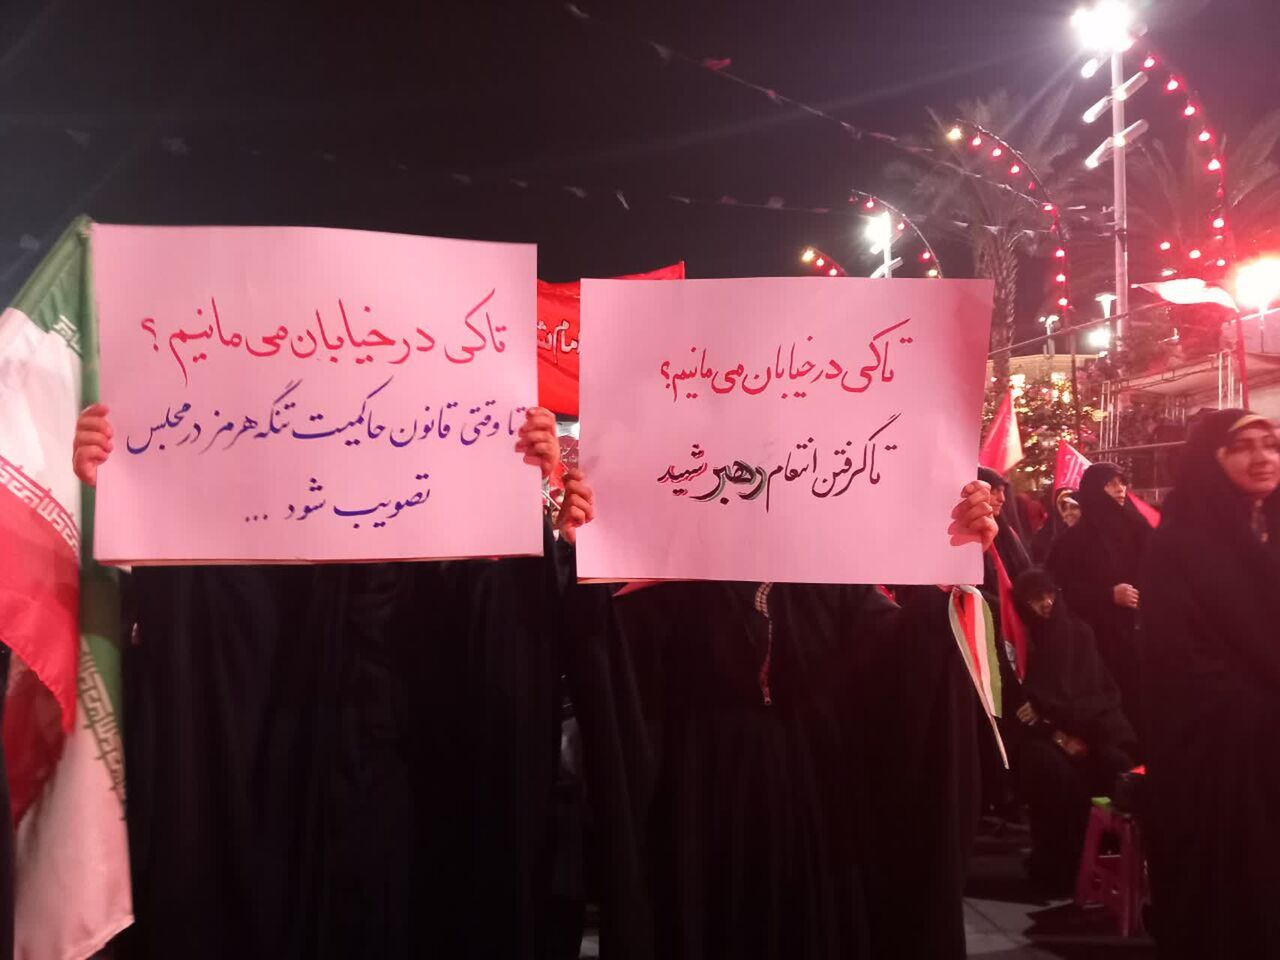 تا کی در خیابان می‌مانیم؟
تا وقتی قانون حاکمیت تنگه هرمز در مجلس
تصویب شود ...
تا کی در خیابان می‌مانیم؟
تا گرفتن انتقام رهبر شهید